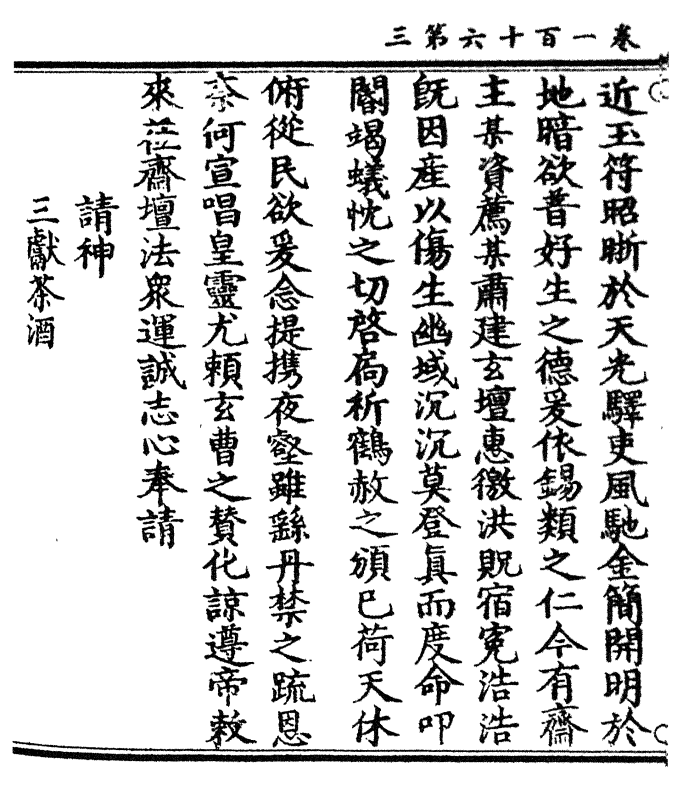 卷一百十六第三
近玉符昭晣於天光驛吏風馳金簡開明於
地暗欲普好生之德爰依錫類之仁今有齋
主某資薦某肅建玄壇惠徼洪貺宿寃浩浩
旣因産以傷生幽域沉沉莫登眞而度命叩
閽竭蟻忱之切啓扃祈鶴赦之頒巳荷天休
俯從民欲爰念提携夜壑雖繇丹禁之疏恩
柰何宣唱皇靈尤頼玄曹之賛化諒遵帝敕
來莅齋壇法衆運誠志心奉請
請神
三獻茶酒